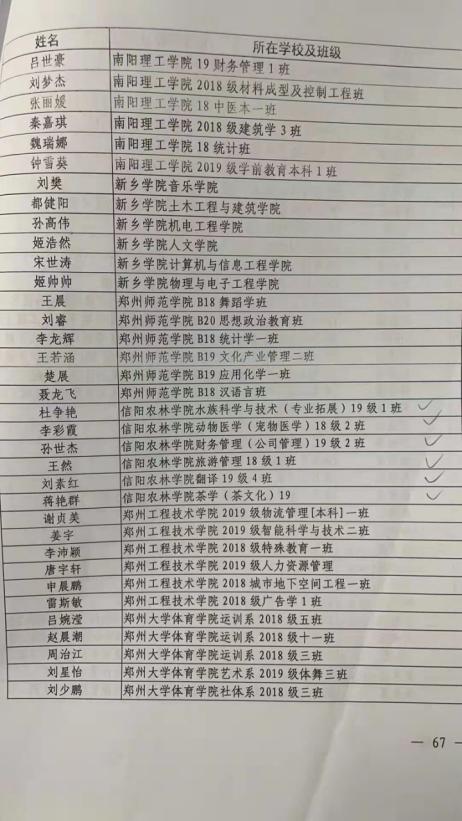 姓名 所在学校及班级
吕世豪 南阳理工学院 19 财务管理 1 班
刘梦杰 南阳理工学院 2018 级材料成型及控制工程班
张丽媛 南阳理工学院 18 中医本一班
秦嘉琪 南阳理工学院 2018 级建筑学 3 班
魏瑞娜 南阳理工学院 18 统计班
钟雪葵 南阳理工学院 2019 级学前教育本科 1 班
刘樊 新乡学院音乐学院
郝健阳 新乡学院土木工程与建筑学院
孙高伟 新乡学院机电工程学院
姬浩然 新乡学院人文学院
宋世涛 新乡学院计算机与信息工程学院
姬帅帅 新乡学院物理与电子工程学院
王晨 郑州师范学院 B18 舞蹈学班
刘睿 郑州师范学院 B20 思想政治教育班
李龙辉 郑州师范学院 B18 统计学一班
王若涵 郑州师范学院 B19 文化产业管理二班
楚展 郑州师范学院 B19 应用化学一班
聂龙飞 郑州师范学院 B18 汉语言班
杜争艳 信阳农林学院水族科学与技术（专业拓展）19 级 1 班
李彩霞 信阳农林学院动物医学（宠物医学）18 级 2 班
孙世杰 信阳农林学院财务管理（公司管理）19 级 2 班
王然 信阳农林学院旅游管理 18 级 1 班
刘素红 信阳农林学院翻译 19 级 4 班
蒋艳群 信阳农林学院茶学（茶文化）19
谢贞美 郑州工程技术学院 2019 级物流管理[本科]一班
姜宇 郑州工程技术学院 2019 级智能科学与技术二班
李沛颖 郑州工程技术学院 2018 级特殊教育一班
唐宇轩 郑州工程技术学院 2019 级人力资源管理
申展鹏 郑州工程技术学院 2018 城市地下空间工程一班
雷斯敏 郑州工程技术学院 2018 级广告学 1 班
吕婉滢 郑州大学体育学院运训系 2018 级五班
赵晨潮 郑州大学体育学院运训系 2018 级十一班
周治江 郑州大学体育学院运训系 2018 级三班
刘星怡 郑州大学体育学院艺术系 2019 级体舞三班
刘少鹏 郑州大学体育学院社体系 2018 级三班
— 67 —